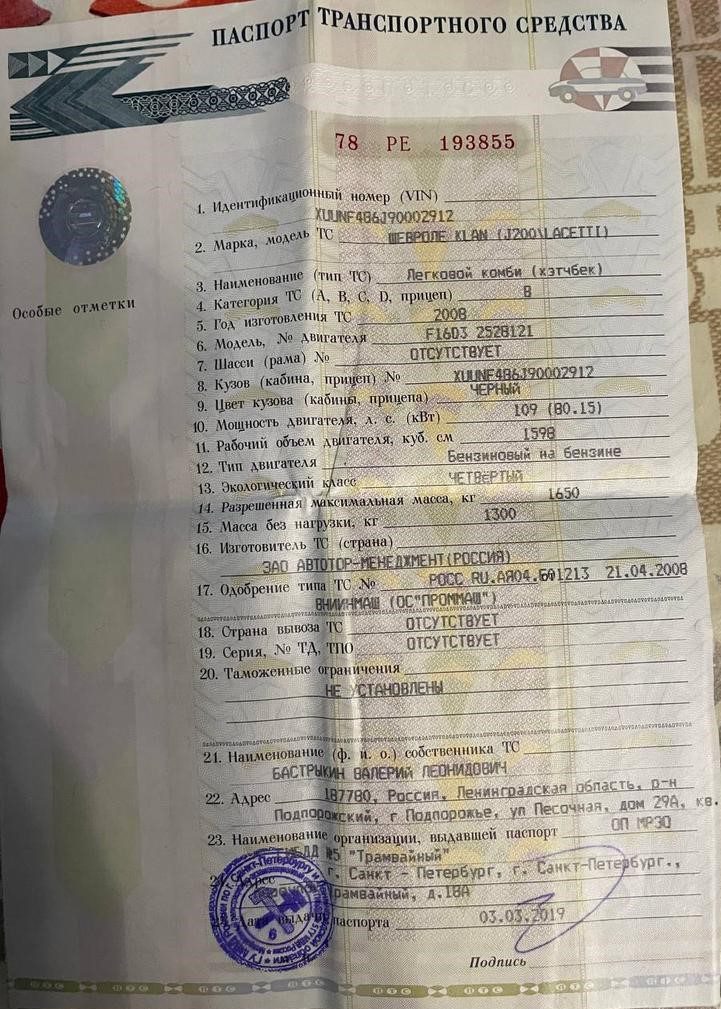 ПАСПОРТ ТРАНСПОРТНОГО СРЕДСТВА
78 РЕ 193855
Особые отметки
1. Идентификационный номер (VIN)
XUUNF486J90002912
2. Марка, модель ТС ШЕВРОЛЕ KLAN (J200\LACETTI)
3. Наименование (тип ТС) Легковой комби (хэтчбек)
4. Категория ТС (A, B, C, D, прицеп) B
5. Год изготовления ТС 2008
6. Модель, № двигателя F16D3 2528121
7. Шасси (рама) № ОТСУТСТВУЕТ
8. Кузов (кабина, прицеп) № XUUNF486J90002912
9. Цвет кузова (кабины, прицепа) ЧЕРНЫЙ
10. Мощность двигателя, л. с. (кВт) 109 (80.15)
11. Рабочий объем двигателя, куб. см 1598
12. Тип двигателя Бензиновый на бензине
13. Экологический класс ЧЕТВЕРТЫЙ
14. Разрешенная максимальная масса, кг 1650
15. Масса без нагрузки, кг 1300
16. Изготовитель ТС (страна)
ЗАО АВТОТОР-МЕНЕДЖМЕНТ(РОССИЯ)
17. Одобрение типа ТС № РОСС RU.АЯ04.Б01213 21.04.2008
ВНИИНМАШ (ОС"ПРОММАШ")
18. Страна вывоза ТС ОТСУТСТВУЕТ
19. Серия, № ТД, ТПО ОТСУТСТВУЕТ
20. Таможенные ограничения
НЕ УСТАНОВЛЕНЫ
21. Наименование (ф. и. о.) собственника ТС
БАСТРЫКИН ВАЛЕРИЙ ЛЕОНИДОВИЧ
22. Адрес 187780, Россия, Ленинградская область, р-н
Подпорожский, г Подпорожье, ул Песочная, дом 29А, кв.
23. Наименование организации, выдавшей паспорт ОП МРЭО
№5 "Трамвайный"
Адрес г. Санкт - Петербург, г. Санкт-Петербург.,
Трамвайный, д.18А
Дата выдачи паспорта 03.03.2019
Подпись
ПТС ПТС ПТС ПТС ПТС ПТС